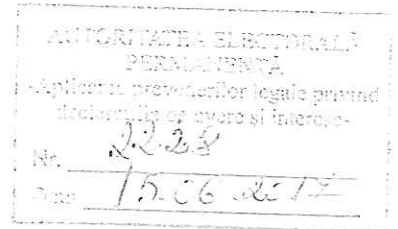 AUTORITATEA ELECTORALĂ
PERMANENTĂ
-Aplicarea prevederilor legale privind
declarațiilor avere și interese-
Nr. 2228
15.06 2017